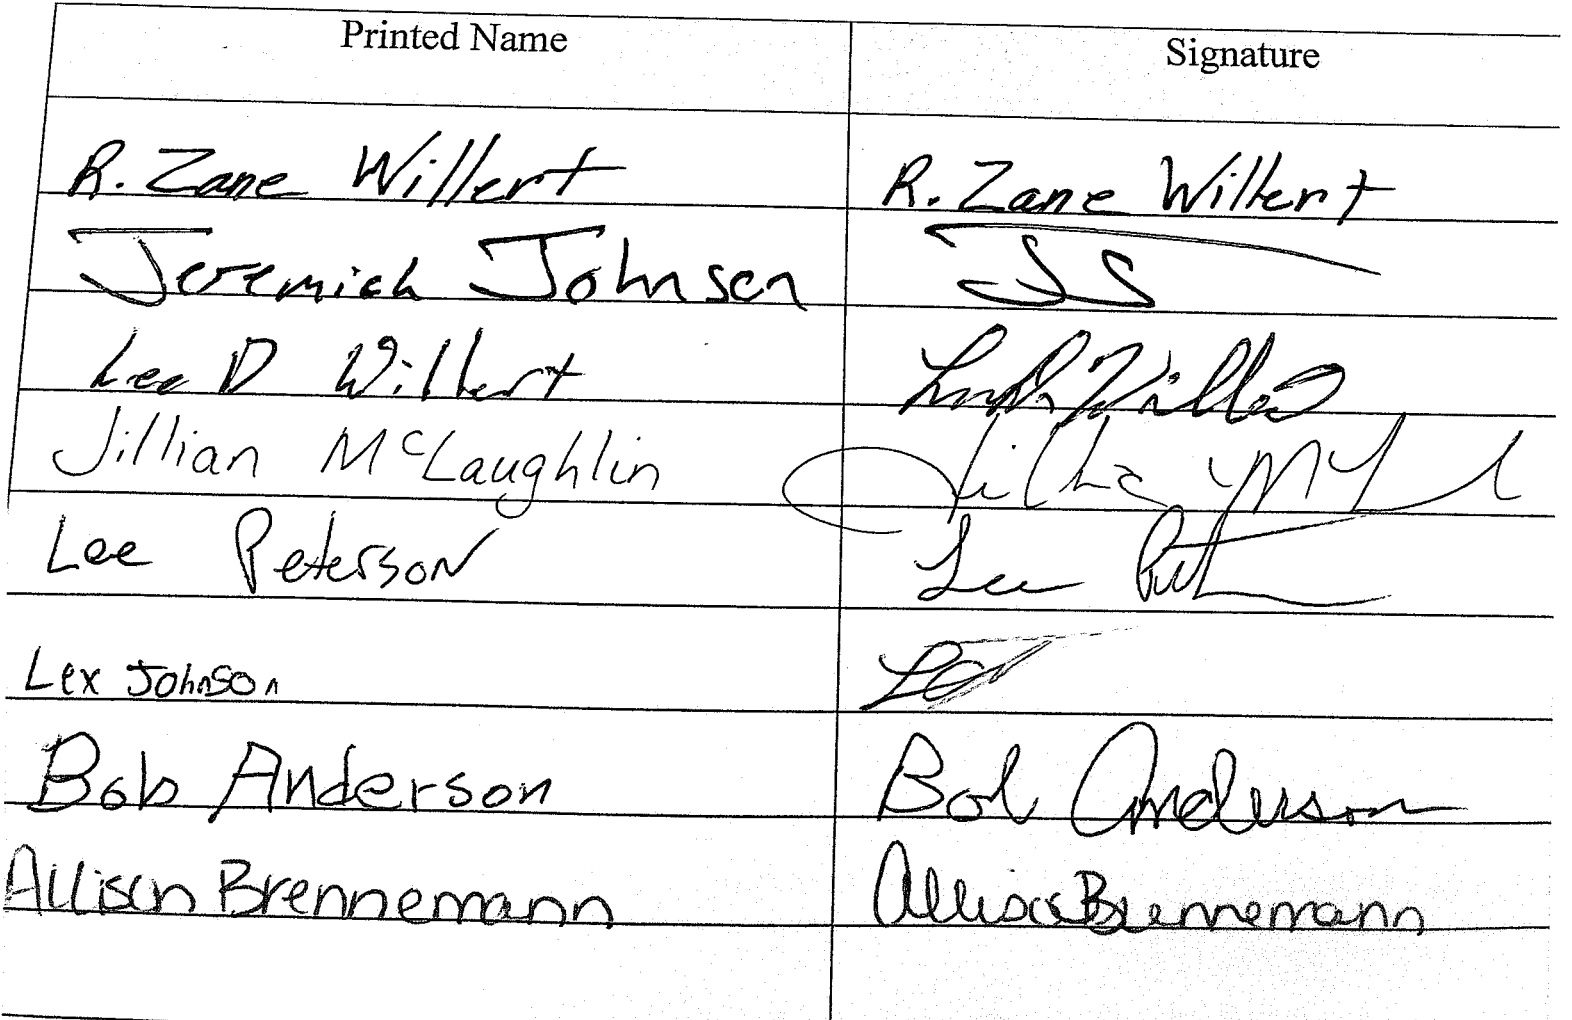 Printed Name Signature
R. Zane Willert R. Zane Willert
Jeremiah Johnson JJ
Lee D Willert
Jillian McLaughlin
Lee Peterson Lee
Lex Johnson
Bob Anderson Bob Anderson
Allison Brennemann Allison Brennemann